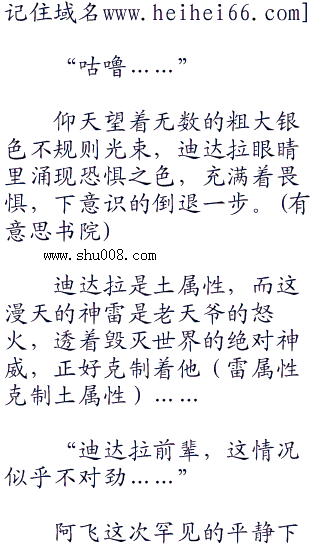 记住域名www.heihei66.com]
“咕噜……”
仰天望着无数的粗大银
色不规则光束，迪达拉眼睛
里涌现恐惧之色，充满着畏
惧，下意识的倒退一步。(有
意思书院)
www.shu008.com
迪达拉是土属性，而这
漫天的神雷是老天爷的怒
火，透着毁灭世界的绝对神
威，正好克制着他（雷属性
克制土属性）……
“迪达拉前辈，这情况
似乎不对劲……”
阿飞这次罕见的平静下